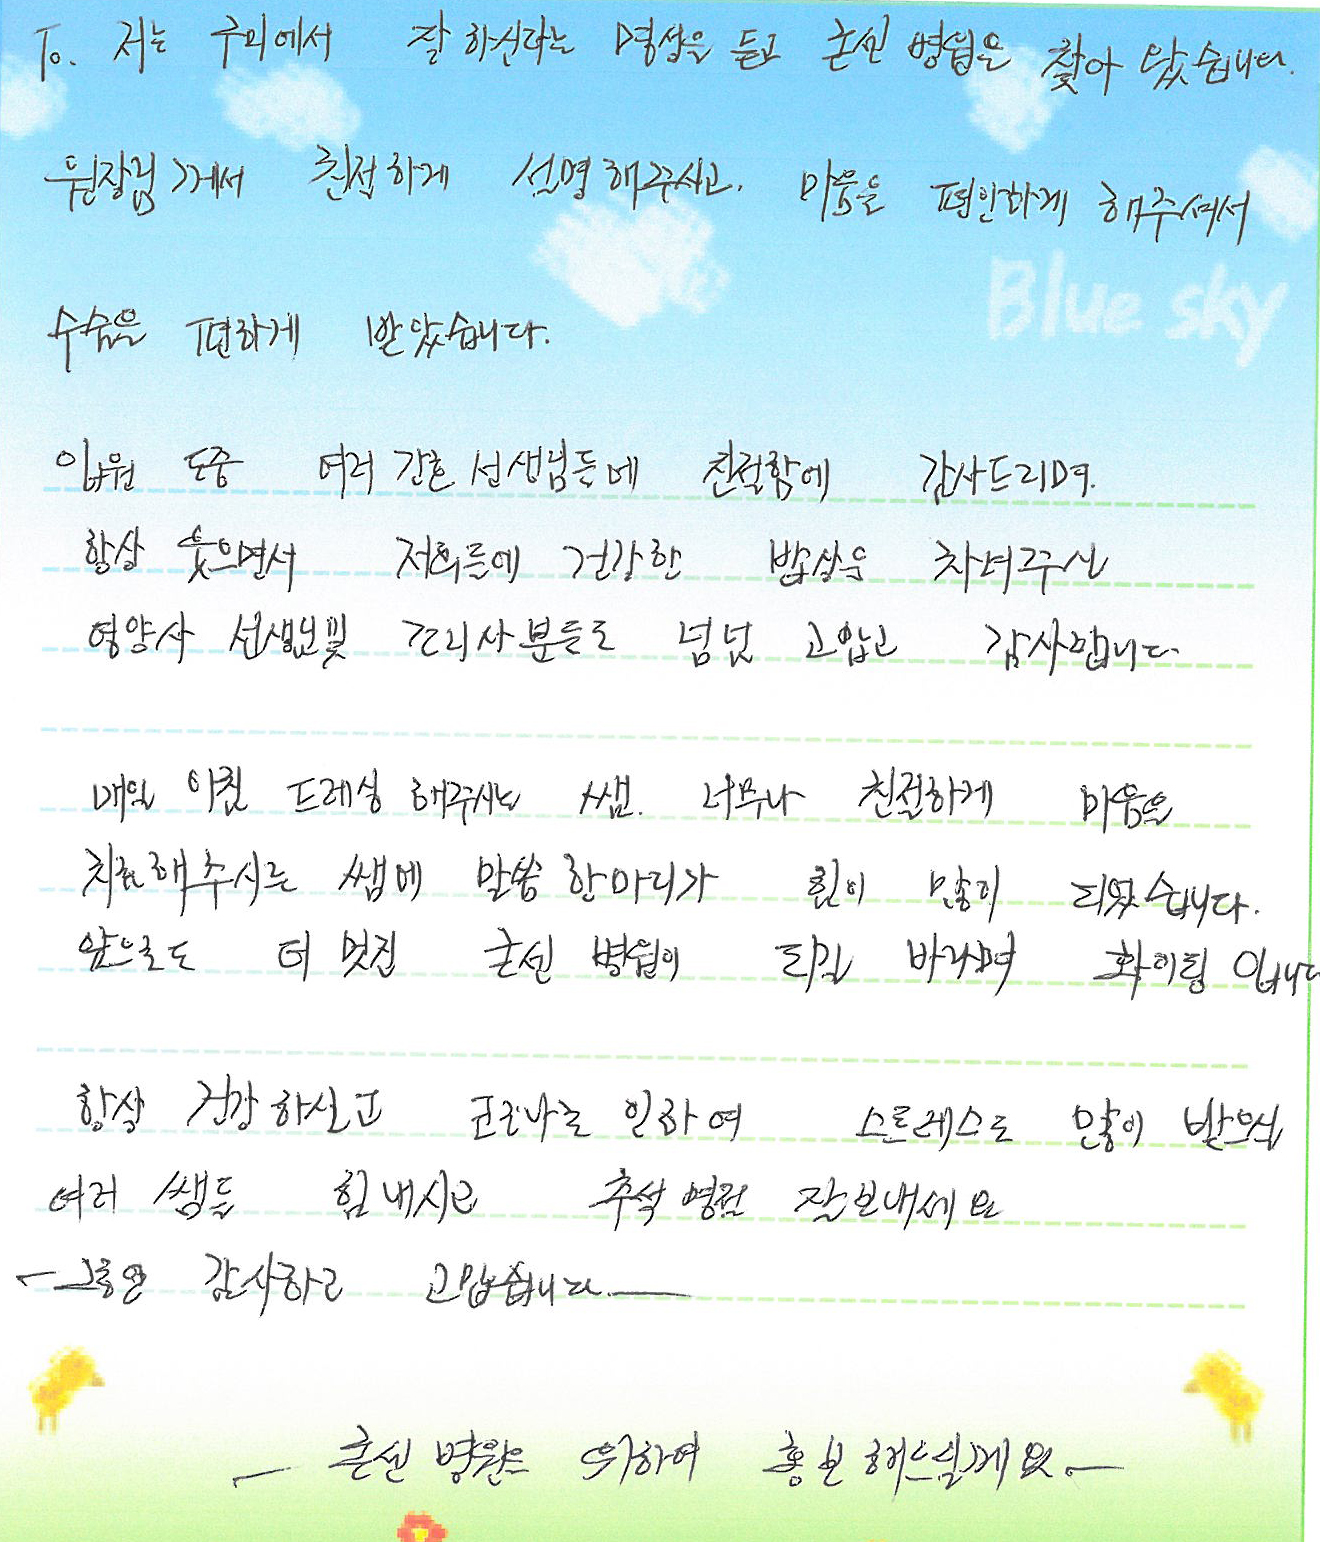 To. 저는 주위에서 잘 하신다는 명성을 듣고 굿쎈 병원을 찾아 왔습니다.
원장님께서 친절하게 설명해주시고. 마음을 편안하게 해주셔서
Blue sky
수술을 편하게 받았습니다.
입원 도중 여러 간호 선생님들에 친절함에 감사드리며.
항상 웃으면서 저희들에 건강한 밥상을 차려주신
영양사 선생님 및 조리사분들도 넘넘 고맙고 감사합니다.
매일 아침 드레싱 해주시는 쌤. 너무나 친절하게 마음을
치료해주시는 쌤에 말씀 한마디가 힘이 많이 되었습니다.
앞으로도 더 멋진 병원이 되길 바라며 화이팅 입니다
항상 건강하시고 코로나로 인하여 스트레스도 많이 받으신
여러 쌤들 힘내시고 추석 명절 잘보내세요
- 그동안 감사하고 고맙습니다. -
- 병원을 위하여 홍보해드릴게요. -